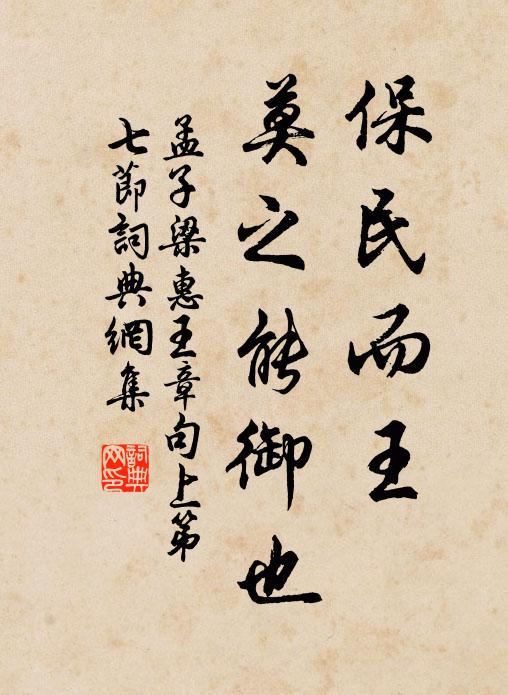 保民而王
莫之能御也
孟子梁惠王章句上第
七節詞典網集
詞典網印